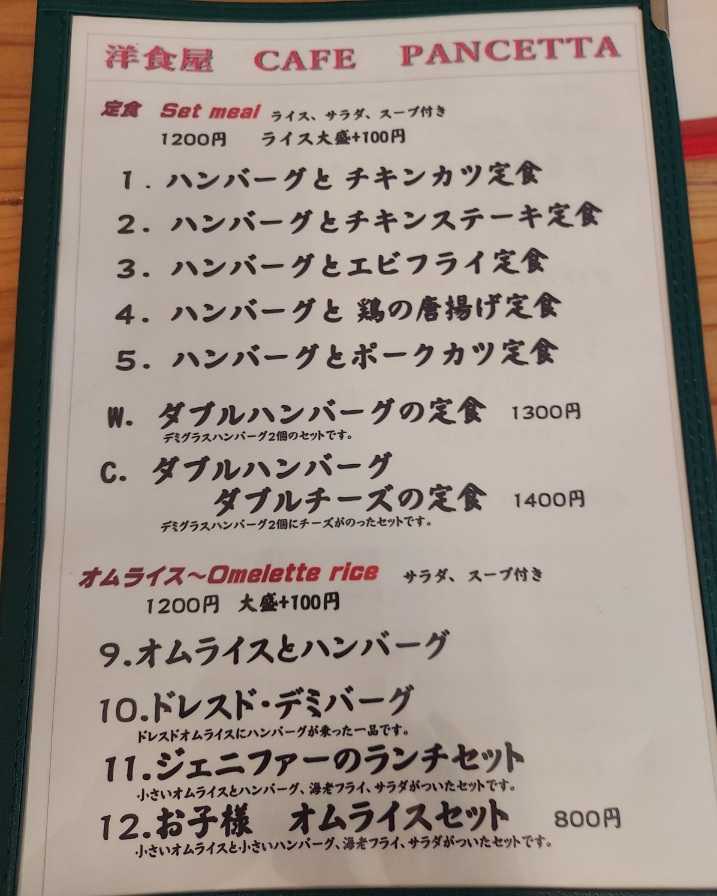 洋食屋　CAFE　PANCETTA
定食　Set meal ライス、サラダ、スープ付き
1200円　ライス大盛+100円
1．ハンバーグと チキンカツ定食
2．ハンバーグとチキンステーキ定食
3．ハンバーグとエビフライ定食
4．ハンバーグと 鶏の唐揚げ定食
5．ハンバーグとポークカツ定食
W．ダブルハンバーグの定食　1300円
デミグラスハンバーグ2個のセットです。
C．ダブルハンバーグ
ダブルチーズの定食　1400円
デミグラスハンバーグ2個にチーズがのったセットです。
オムライス～Omelette rice　サラダ、スープ付き
1200円　大盛+100円
9.オムライスとハンバーグ
10.ドレスド・デミバーグ
ドレスドオムライスにハンバーグが乗った一品です。
11.ジェニファーのランチセット
小さいオムライスとハンバーグ、海老フライ、サラダがついたセットです。
12.お子様　オムライスセット　800円
小さいオムライスと小さいハンバーグ、海老フライ、サラダがついたセットです。